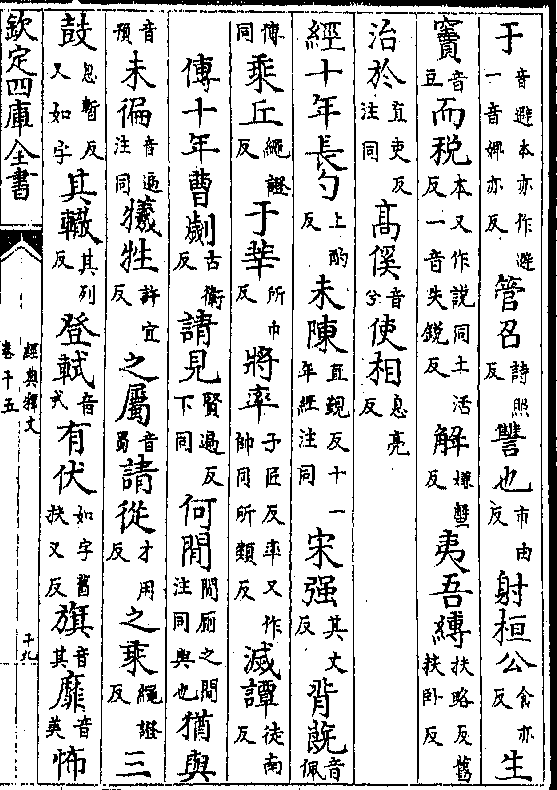 于音避本亦作避一音婢亦反管召詩照反讐也市由反射桓公食亦反生
竇音豆而稅本又作說同土活反一音失銳反解嫌蟹反夷吾縛扶略反舊扶卧反
治於直吏反注同高傒音兮使相息亮反
經十年長勺上酌反未陳直覲反十一年經注同宋强其丈反背旣音佩
傳同乘丘繩證反于莘所巾反將率子匠反率又作帥同所類反滅譚徒南反
傳十年曹劌古衞反請見賢遍反下同何間間厠之間注同與也猶與
音預未徧音遍注同犧牲許宜反之屬音蜀請從才用反之乘繩證反三
鼓息暫反又如字其轍其列反登軾音式有伏如字舊扶又反旗音其靡音美怖
欽定四庫全書
經典釋文
卷十五
十九